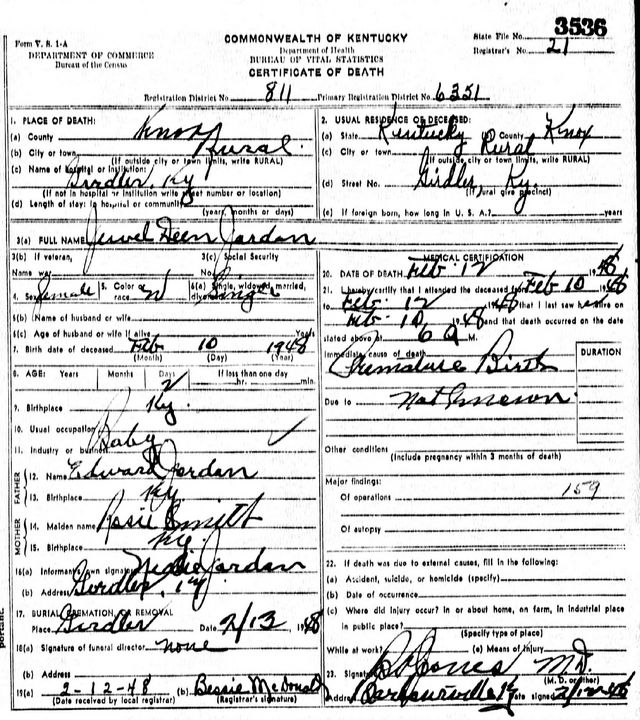 3536
Form V. S. 1-A
DEPARTMENT OF COMMERCE
Bureau of the Census
COMMONWEALTH OF KENTUCKY
Department of Health
BUREAU OF VITAL STATISTICS
CERTIFICATE OF DEATH
State File No.
Registrar's No. 21
Registration District No. 811 Primary Registration District No. 6351
1. PLACE OF DEATH:
(a) County Knox
(b) City or town Rural
(If outside city or town limits, write RURAL)
(c) Name of hospital or institution:
Girdler, Ky
(If not in hospital or institution write street number or location)
(d) Length of stay: In hospital or community
(years, months or days)
2. USUAL RESIDENCE OF DECEASED:
(a) State Kentucky (b) County Knox
(c) City or town Rural
(If outside city or town limits, write RURAL)
(d) Street No. Girdler, Ky.
(If rural give precinct)
(e) If foreign born, how long in U. S. A.? years
3(a) FULL NAME Jewel Deen Jordan
3(b) If veteran,
Name war
3(c) Social Security
No.
4. Sex female 5. Color or race W 6(a) Single, widowed, married, divorced Single
6(b) Name of husband or wife
6(c) Age of husband or wife if alive Years
7. Birth date of deceased Feb 10 1948
(Month) (Day) (Year)
8. AGE: Years Months Days 2 If less than one day
hr. min.
9. Birthplace Ky.
10. Usual occupation Baby
11. Industry or business
FATHER
12. Name Edward Jordan
13. Birthplace Ky.
MOTHER
14. Maiden name Rosie Smith
15. Birthplace Ky.
16(a) Informant's own signature Jordan
(b) Address Girdler, Ky
17. BURIAL, CREMATION, OR REMOVAL
Place Girdler Date 2/13 1948
18(a) Signature of funeral director none
(b) Address
19(a) 2-12-48 (b) Bessie McDonald
(Date received by local registrar) (Registrar's signature)
MEDICAL CERTIFICATION
20. DATE OF DEATH Feb. 12 1948
21. I hereby certify that I attended the deceased from Feb 10 1948
to Feb. 12 1948 that I last saw her alive on
Feb. 10 1948 and that death occurred on the date
stated above at 6 A M.
Immediate cause of death
Premature Birth
DURATION
Due to Not Known
Other conditions
(Include pregnancy within 3 months of death)
Major findings:
Of operations 159
Of autopsy
22. If death was due to external causes, fill in the following:
(a) Accident, suicide, or homicide (specify)
(b) Date of occurrence
(c) Where did injury occur? In or about home, on farm, in industrial place
in public place?
(Specify type of place)
While at work? (e) Means of Injury
23. Signature Jones M.D.
(M. D. or other)
Address Barbourville Ky Date signed 2/12 48